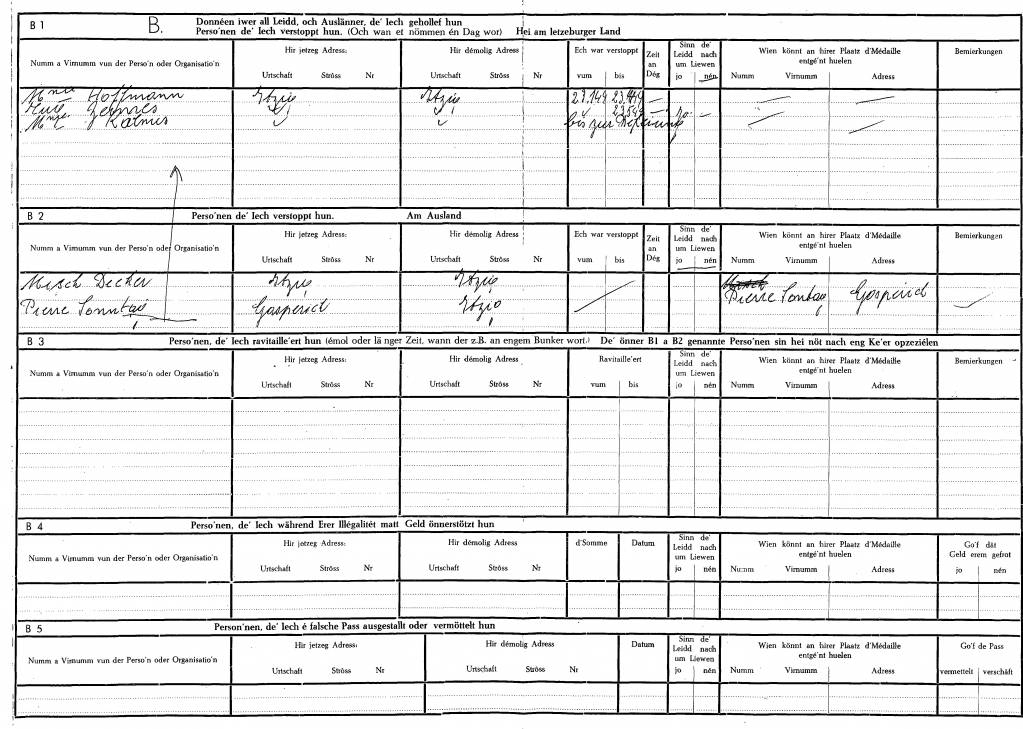 B 1 B. Donnéen iwer all Leidd, och Auslänner, de' Iech gehollef hun
Perso'nen de' Iech verstoppt hun. (Och wan et nömmen én Dag wor) Hei am letzeburger Land
Numm a Virnumm vun der Perso'n oder Organisatio'n Hir jetzeg Adress: Urtschaft Ströss Nr Hir démolig Adress Urtschaft Ströss Nr Ech war verstoppt vum bis Zeit an Dég Sinn de' Leidd nach um Liewen jo nén Wien könnt an hirer Plaatz d'Médaille entgé'nt huelen Numm Virnumm Adress Bemierkungen
Hoffmann Itzig Itzig
bis zur
B 2 Perso'nen de' Iech verstoppt hun. Am Ausland
Numm a Virnumm vun der Perso'n oder Organisatio'n Hir jetzeg Adress: Urtschaft Ströss Nr Hir démolig Adress Urtschaft Ströss Nr Ech war verstoppt vum bis Zeit an Dég Sinn de' Leidd nach um Liewen jo nén Wien könnt an hirer Plaatz d'Médaille entgé'nt huelen Numm Virnumm Adress Bemierkungen
Misch Decker Itzig Itzig
Pierre Sonntag Gasperich Itzig Pierre Sontag Gasperich
B 3 Perso'nen, de' Iech ravitaille'ert hun (émol oder länger Zeit, wann der z.B. an engem Bunker wort.) De' önner B1 a B2 genannte Perso'nen sin hei nöt nach eng Ke'er opzeziélen
Numm a Virnumm vun der Perso'n oder Organisatio'n Hir jetzeg Adress: Urtschaft Ströss Nr Hir démolig Adress Urtschaft Ströss Nr Ravitaille'ert vum bis Sinn de' Leidd nach um Liewen jo nén Wien könnt an hirer Plaatz d'Médaille entgé'nt huelen Numm Virnumm Adress Bemierkungen
B 4 Perso'nen, de' Iech während Erer Illégalitét matt Geld önnerstötzt hun
Numm a Virnumm vun der Perso'n oder Organisatio'n Hir jetzeg Adress: Urtschaft Ströss Nr Hir démolig Adress: Urtschaft Ströss Nr d'Somme Datum Sinn de' Leidd nach um Liewen jo nén Wien könnt an hirer Plaatz d'Médaille entgé'nt huelen Numm Virnumm Adress Go'f dät Geld erem gefrot jo nén
B 5 Person'nen, de' Iech é falsche Pass ausgestallt oder vermöttelt hun
Numm a Virnumm vun der Perso'n oder Organisatio'n Hir jetzeg Adress: Urtschaft Ströss Nr Hir démolig Adress Urtschaft Ströss Nr Datum Sinn de' Leidd nach um Liewen jo nén Wien könnt an hirer Plaatz d'Médaille entgé'nt huelen Numm Virnumm Adress Go'f de Pass vermettelt verschäft